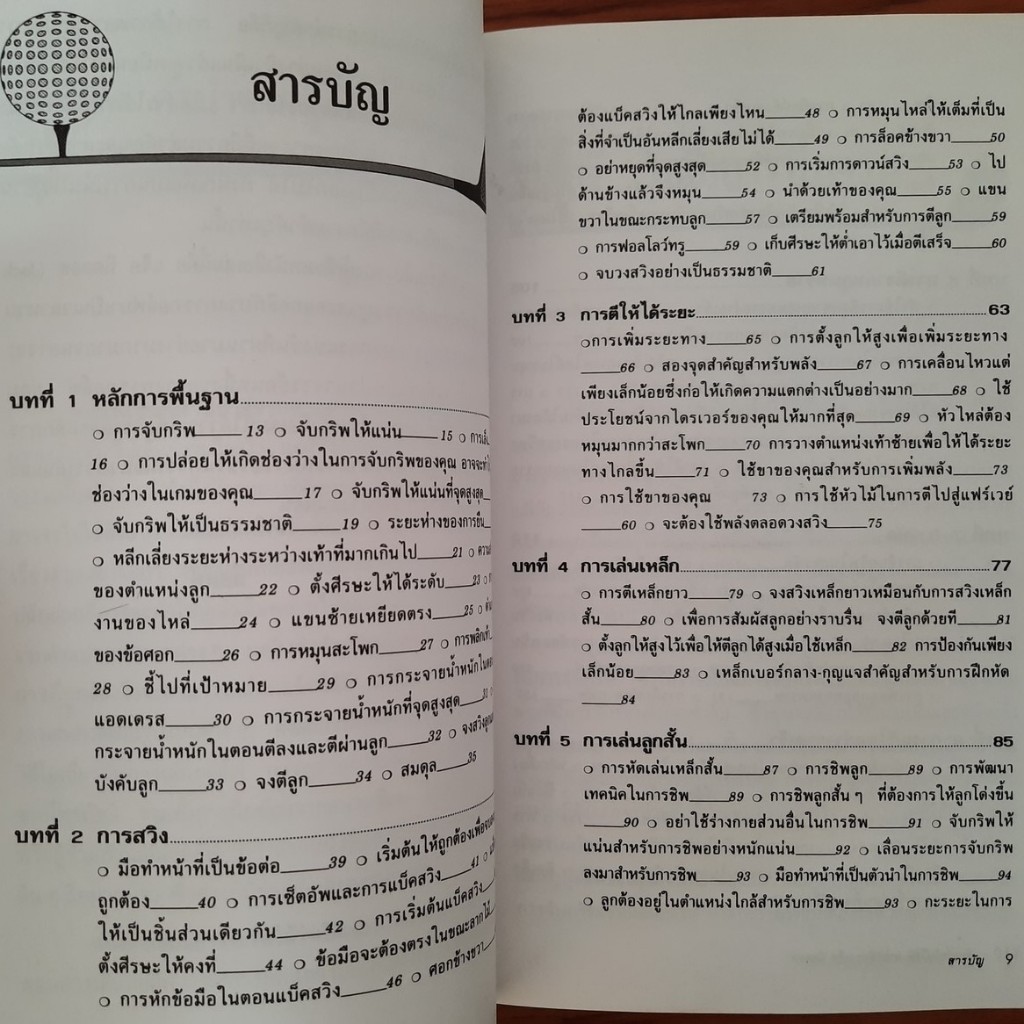 สารบัญ
บทที่ 1 หลักการพื้นฐาน
❍ การจับกริพ_____13 ❍ จับกริพให้แน่น_____15 ❍
16 ❍ การปล่อยให้เกิดช่องว่างในการจับกริพของคุณ อาจจะ
ช่องว่างในเกมของคุณ_____17 ❍ จับกริพให้แน่นที่จุดสูงสุด
❍ จับกริพให้เป็นธรรมชาติ_____19 ❍ ระยะห่างของการยืน
❍ หลีกเลี่ยงระยะห่างระหว่างเท้าที่มากเกินไป_____21 ❍
ของตำแหน่งลูก_____22 ❍ ตั้งศีรษะให้ได้ระดับ_____23 ❍
งานของไหล่_____24 ❍ แขนซ้ายเหยียดตรง_____25 ❍
ของข้อศอก_____26 ❍ การหมุนสะโพก_____27 ❍
28 ❍ ชี้ไปที่เป้าหมาย_____29 ❍ การกระจายน้ำหนักใน
แอดเดรส_____30 ❍ การกระจายน้ำหนักที่จุดสูงสุด
กระจายน้ำหนักในตอนตีลงและตีผ่านลูก_____32 ❍
บังคับลูก_____33 ❍ จงตีลูก_____34 ❍ สมดุล_____35
บทที่ 2 การสวิง
❍ มือทำหน้าที่เป็นข้อต่อ_____39 ❍ เริ่มต้นให้ถูกต้องเพื่อ
ถูกต้อง_____40 ❍ การเซ็ตอัพและการแบ็คสวิง_____41 ❍
ให้เป็นชิ้นส่วนเดียวกัน_____42 ❍ การเริ่มต้นแบ็คสวิง
ตั้งศีรษะให้คงที่_____44 ❍ ข้อมือจะต้องตรงในขณะลากไม้
❍ การหักข้อมือในตอนแบ็คสวิง_____46 ❍ ศอกข้างขวา
ต้องแบ็คสวิงให้ไกลเพียงไหน_____48 ❍ การหมุนไหล่ให้เต็มที่เป็น
สิ่งที่จำเป็นอันหลีกเลี่ยงเสียไม่ได้_____49 ❍ การล็อคข้างขวา_____50
❍ อย่าหยุดที่จุดสูงสุด_____52 ❍ การเริ่มการดาวน์สวิง_____53 ❍ ไป
ด้านข้างแล้วจึงหมุน_____54 ❍ นำด้วยเท้าของคุณ_____55 ❍ แขน
ขวาในขณะกระทบลูก_____57 ❍ เตรียมพร้อมสำหรับการตีลูก_____59
❍ การฟอลโลว์ทรู_____59 ❍ เก็บศีรษะให้ต่ำเอาไว้เมื่อตีเสร็จ_____60
❍ จบวงสวิงอย่างเป็นธรรมชาติ_____61
บทที่ 3 การตีให้ได้ระยะ.....63
❍การเพิ่มระยะทาง_____65 ❍ การตั้งลูกให้สูงเพื่อเพิ่มระยะทาง
_____66 ❍ สองจุดสำคัญสำหรับพลัง_____67 ❍ การเคลื่อนไหวแต่
เพียงเล็กน้อยซึ่งก่อให้เกิดความแตกต่างเป็นอย่างมาก_____68 ❍ ใช้
ประโยชน์จากไดรเวอร์ของคุณให้มากที่สุด_____69 ❍ หัวไหล่ต้อง
หมุนมากกว่าสะโพก_____70 การวางตำแหน่งเท้าซ้ายเพื่อให้ได้ระยะ
ทางไกลขึ้น_____71 ❍ ใช้ขาของคุณสำหรับการเพิ่มพลัง_____73
❍ การใช้ขาของคุณ 73 ❍ การใช้หัวไม้ในการตีไปสู่แฟร์เวย์
_____60 ❍ จะต้องใช้พลังตลอดวงสวิง_____75
บทที่ 4 การเล่นเหล็ก.....77
❍ การตีเหล็กยาว_____79 ❍ จงสวิงเหล็กยาวเหมือนกับการสวิงเหล็ก
สั้น_____80 ❍ เพื่อการสัมผัสลูกอย่างราบรื่น จงตีลูกด้วยที_____81
❍ ตั้งลูกให้สูงไว้เพื่อให้ตีลูกได้สูงเมื่อใช้เหล็ก_____82 การป้องกันเพียง
เล็กน้อย_____83 ❍ เหล็กเบอร์กลาง-กุญแจสำคัญสำหรับการฝึกหัด
_____84
บทที่ 5 การเล่นลูกสั้น.....85
❍ การหัดเล่นเหล็กสั้น_____87 ❍ การชิพลูก_____89 ❍ การพัฒนา
เทคนิคในการชิพ_____89 ❍ การชิพลูกสั้น ๆ ที่ต้องการให้ลูกโด่งขึ้น
_____90 ❍ อย่าใช้ร่างกายส่วนอื่นในการชิพ_____91 ❍ จับกริพให้
แน่นสำหรับการชิพอย่างหนักแน่น_____92 ❍ เลื่อนระยะการจับกริพ
ลงมาสำหรับการชิพ_____93 ❍ มือทำหน้าที่เป็นตัวนำในการชิพ_____94
❍ ลูกต้องอยู่ในตำแหน่งใกล้สำหรับการชิพ_____93 ❍ กะระยะในการ
สารบัญ 9